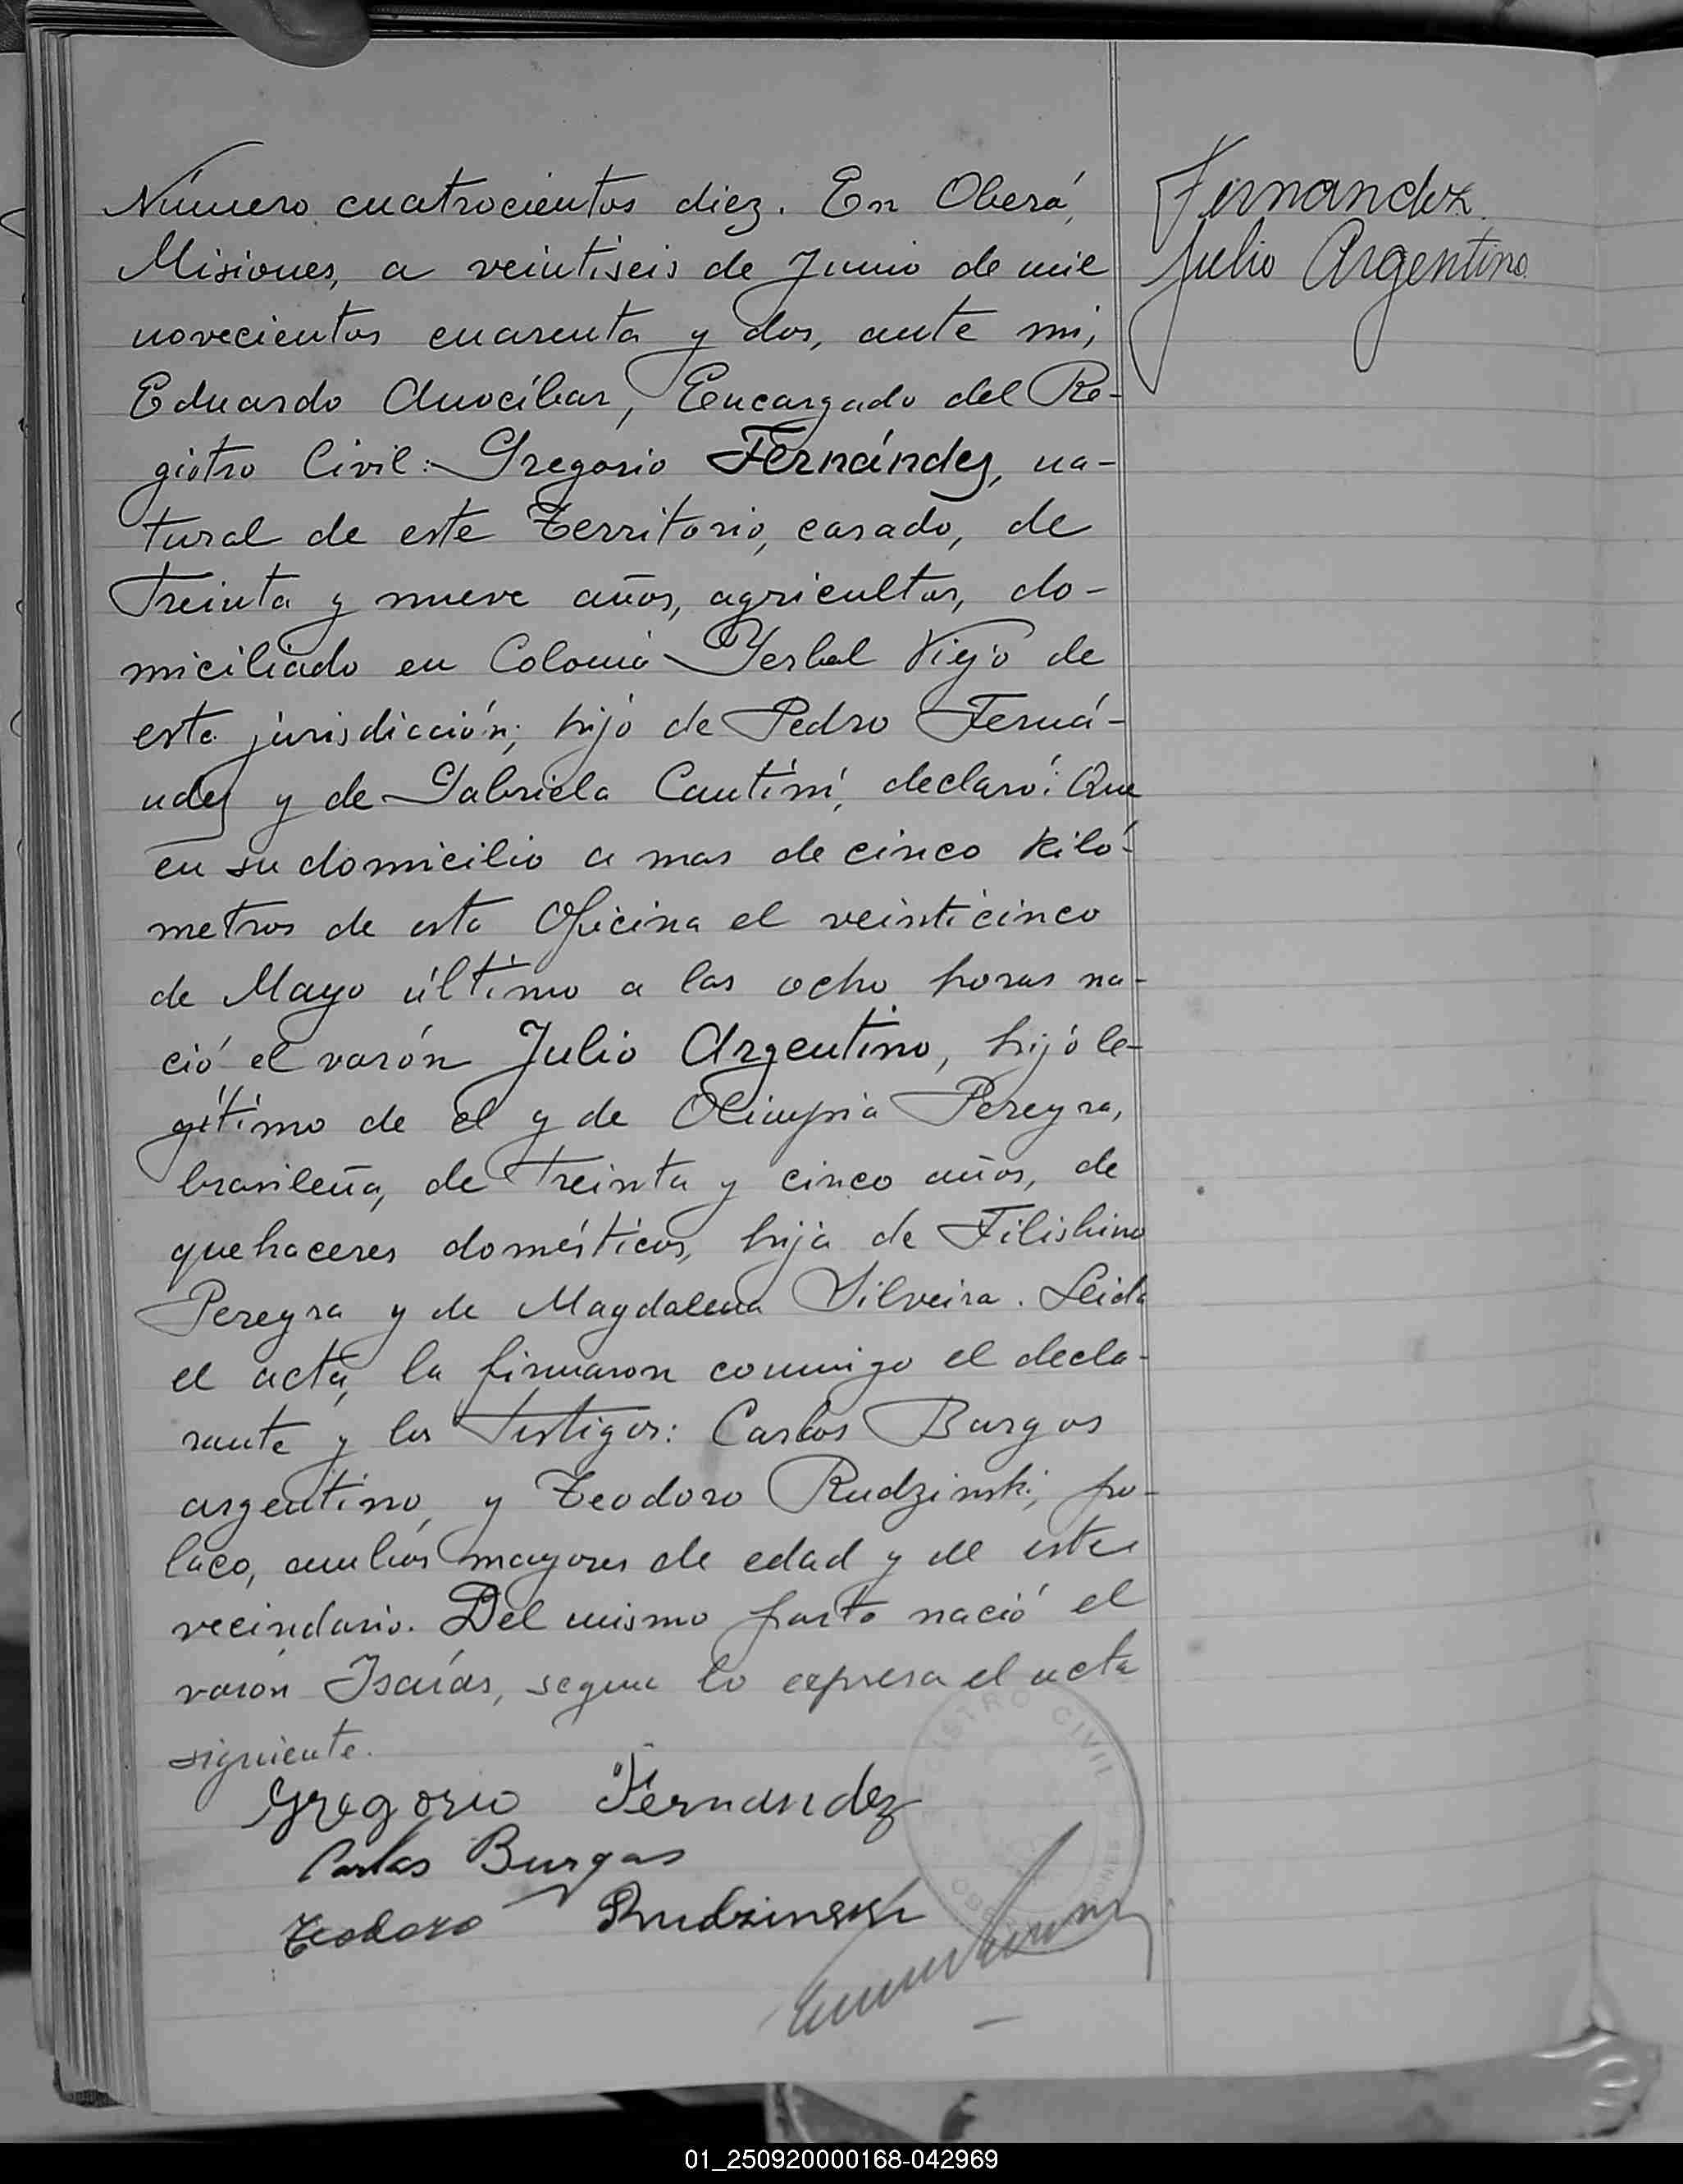 Número cuatrocientos diez. En Oberá,
Misiones, a veintiseis de Junio de mil
novecientos cuarenta y dos, ante mi,
Eduardo Anocíbar, Encargado del Re-
gistro Civil: Gregorio Fernández, na-
tural de este Territorio, casado, de
treinta y nueve años, agricultor, do-
miciliado en Colonia Yerbal Viejo de
esta jurisdicción; hijo de Pedro Ferná-
ndez y de Gabriela Cantini, declaró: Que
en su domicilio a mas de cinco kiló-
metros de esta Oficina el veinticinco
de Mayo último a las ocho horas na-
ció el varón Julio Argentino, hijo le-
gítimo de el y de Olimpia Pereyra,
brasileña, de treinta y cinco años, de
quehaceres domésticos, hija de Filisbino
Pereyra y de Magdalena Silveira. Leida
el acta, la firmaron conmigo el decla-
rante y los testigos: Carlos Burgos
argentino, y Teodoro Rudzinski, po-
laco, ambos mayores de edad y de este
vecindario. Del mismo parto nació el
varón Isaías, segun lo expresa el acta
siguiente.
Gregorio Fernandez
Carlos Burgos
Teodoro Rudzinski
Fernandez
Julio Argentino
ISTRO CIVIL
01_250920000168-042969